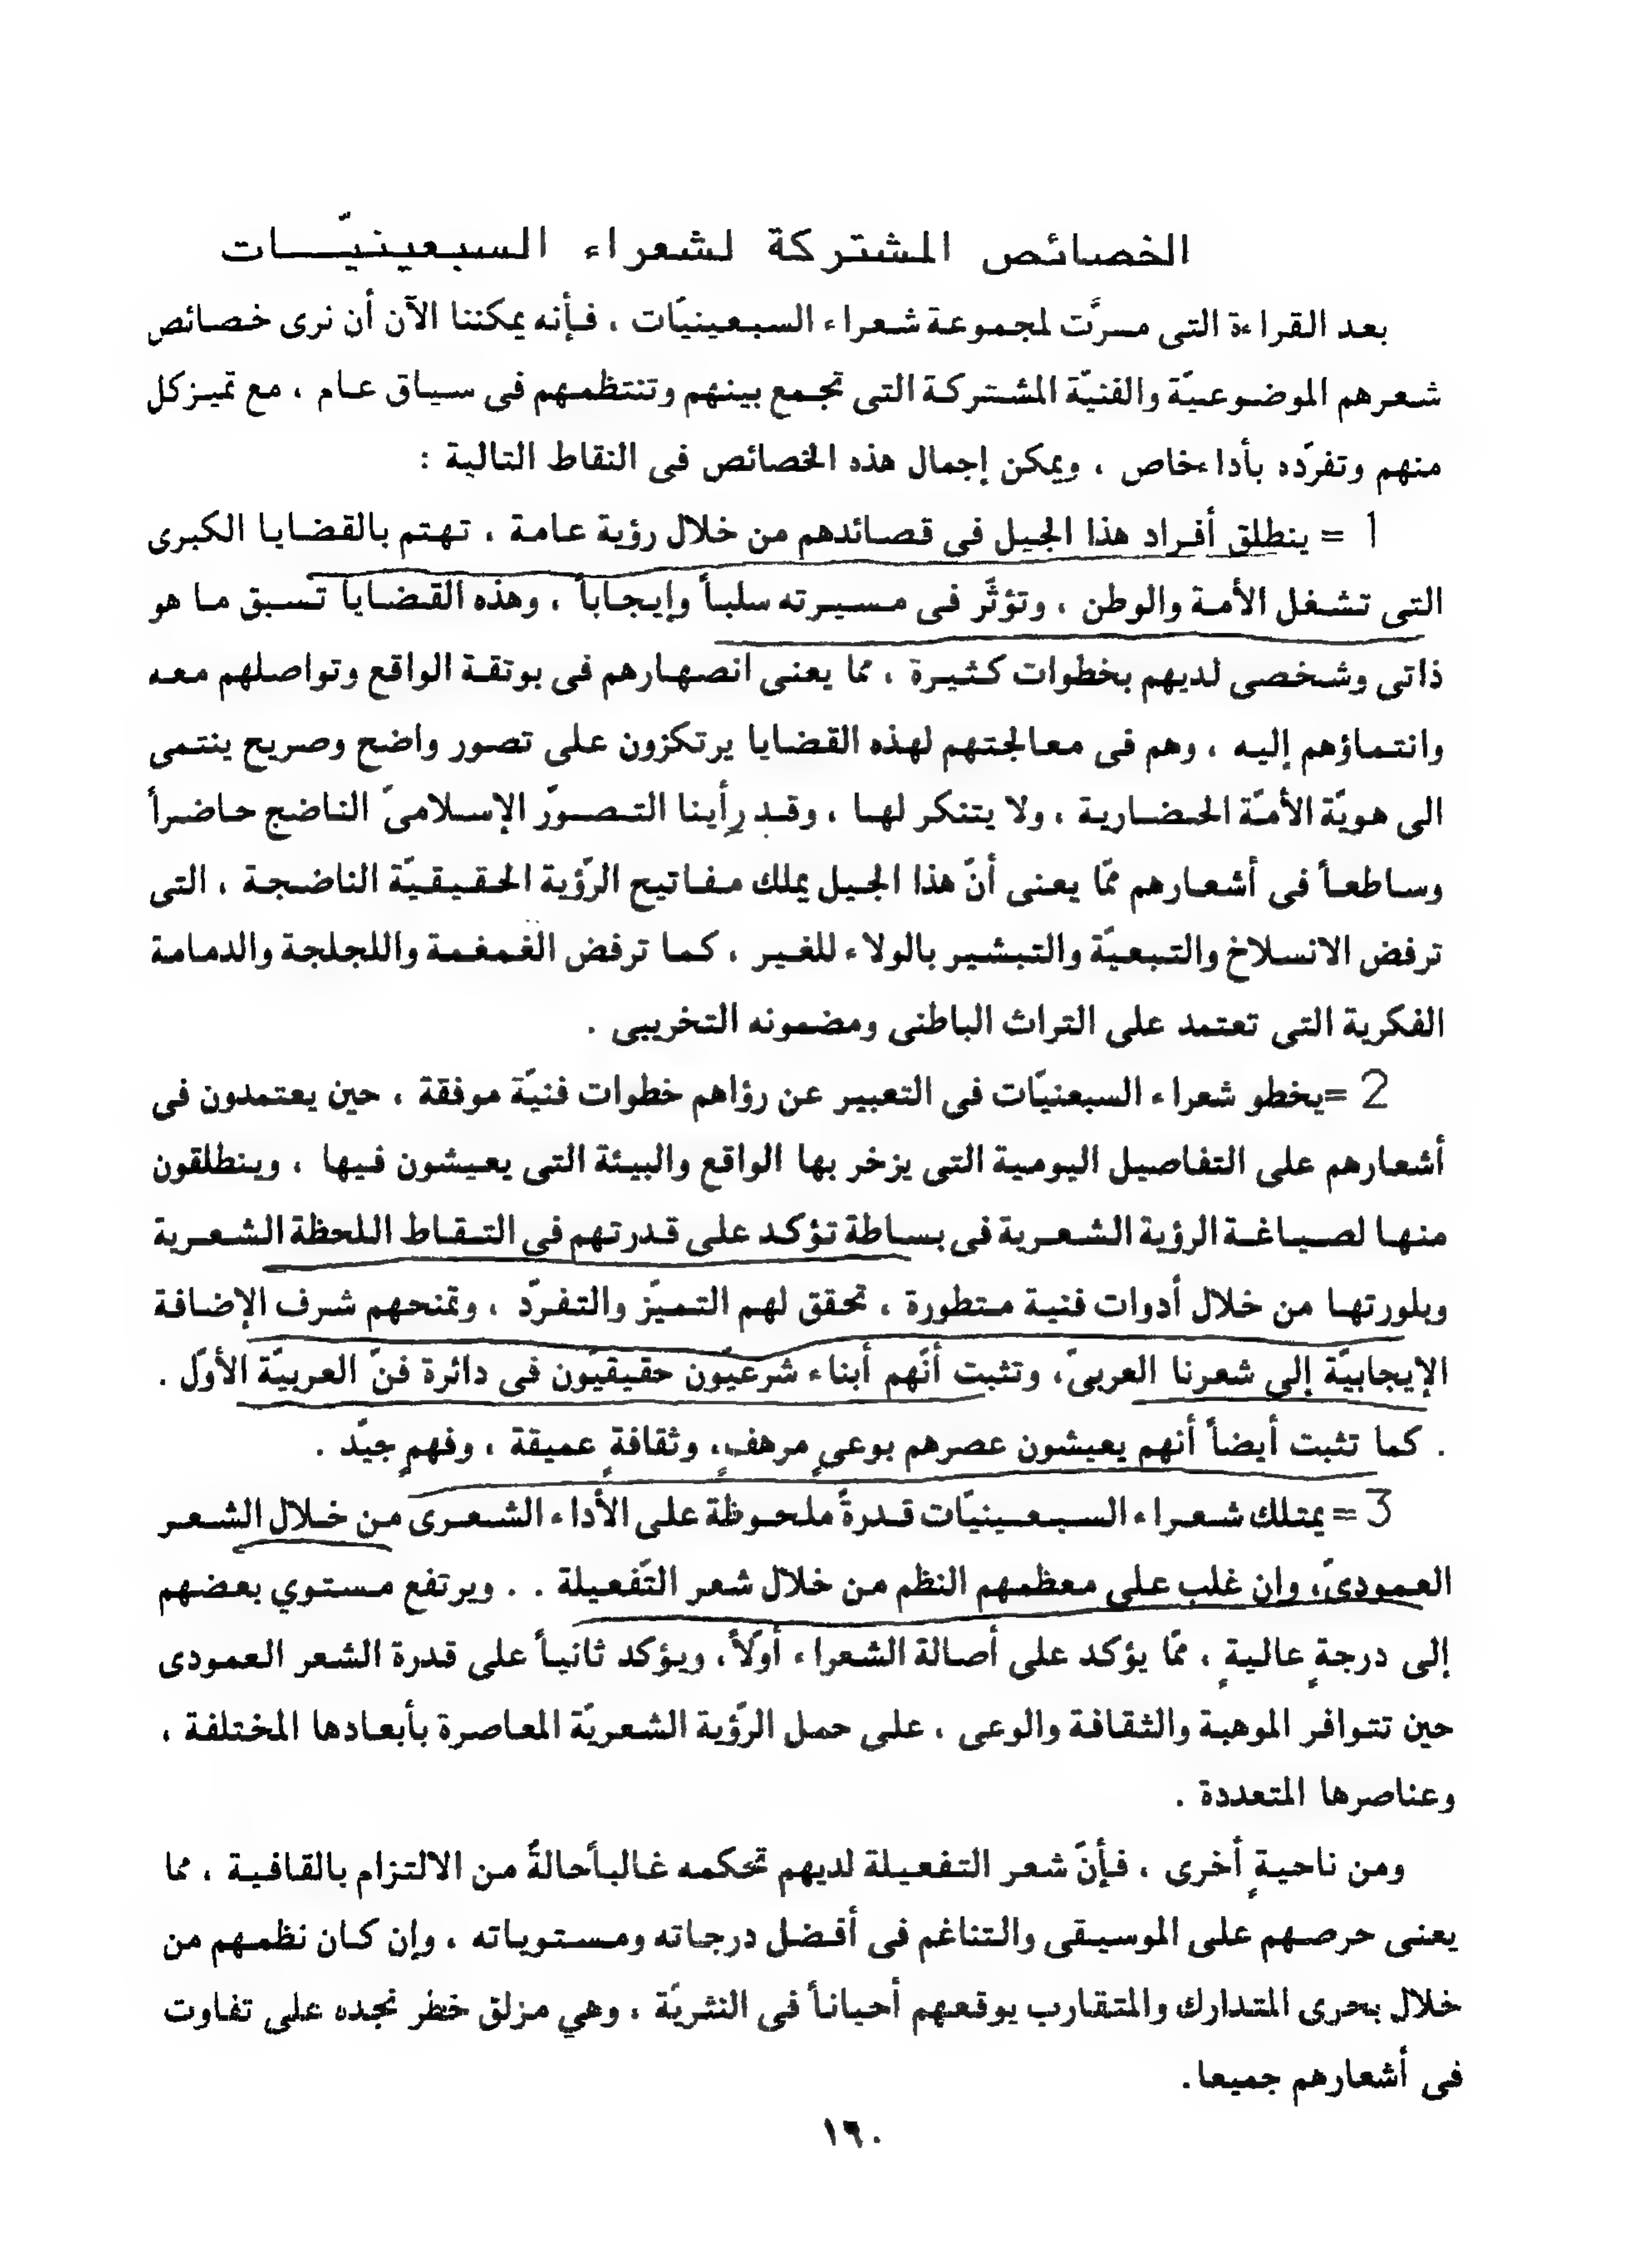 الخصائص المشتركة لشعراء السبعينيّات
بعد القراءة التى مرَّت لمجموعة شعراء السبعينيّات ، فأنه يمكننا الآن أن نرى خصائص
شعرهم الموضوعيّة والفنيّة المشتركة التى تجمع بينهم وتنتظمهم فى سياق عام ، مع تميز كل
منهم وتفرّده بأداء خاص ، ويمكن إجمال هذه الخصائص فى النقاط التالية :
1 = ينطلق أفراد هذا الجيل فى قصائدهم من خلال رؤية عامة ، تهتم بالقضايا الكبرى
التى تشغل الأمة والوطن ، وتؤثَّر فى مسيرته سلباً وإيجاباً ، وهذه القضايا تسبق ما هو
ذاتى وشخصى لديهم بخطوات كثيرة ، مما يعنى انصهارهم فى بوتقة الواقع وتواصلهم معه
وانتماؤهم إليه ، وهم فى معالجتهم لهذه القضايا يرتكزون على تصور واضح وصريح ينتمى
الى هويّة الأمّة الحضارية ، ولا يتنكر لها ، وقد رأينا التصوّر الإسلامىّ الناضج حاضراً
وساطعاً فى أشعارهم ممّا يعنى أنّ هذا الجيل يملك مفاتيح الرّؤية الحقيقيّة الناضجة ، التى
ترفض الانسلاخ والتبعيّة والتبشير بالولاء للغير ، كما ترفض الغمغمة واللجلجة والدمامة
الفكرية التى تعتمد على التراث الباطنى ومضمونه التخريبى .
2 =يخطو شعراء السبعنيّات فى التعبير عن رؤاهم خطوات فنيّة موفقة ، حين يعتمدون فى
أشعارهم على التفاصيل اليومية التى يزخر بها الواقع والبيئة التى يعيشون فيها ، وينطلقون
منها لصياغة الرؤية الشعرية فى بساطة تؤكد على قدرتهم فى التقاط اللحظة الشعرية
وبلورتها من خلال أدوات فنية متطورة ، تحقق لهم التميّز والتفرّد ، وتمنحهم شرف الإضافة
الإيجابيّة إلى شعرنا العربىّ، وتثبت أنّهم أبناء شرعيّون حقيقيّون فى دائرة فنّ العربيّة الأوّل .
. كما تثبت أيضاً أنهم يعيشون عصرهم بوعىٍ مرهفٍ، وثقافةٍ عميقة ، وفهمٍ جيّد .
3 = يمتلك شعراء السبعينيّات قدرةً ملحوظة على الأداء الشعرى من خلال الشعر
العمودىّ، وان غلب على معظمهم النظم من خلال شعر التّفعيلة . . ويرتفع مستوي بعضهم
إلى درجةٍ عاليةٍ ، ممّا يؤكد على أصالة الشعراء أوّلاً، ويؤكد ثانياً على قدرة الشعر العمودى
حين تتوافر الموهبة والثقافة والوعى ، على حمل الرّؤية الشعريّة المعاصرة بأبعادها المختلفة ،
وعناصرها المتعددة .
ومن ناحيةٍ أخرى ، فأنّ شعر التفعيلة لديهم تحكمه غالباً حالةٌ من الالتزام بالقافية ، مما
يعنى حرصهم على الموسيقى والتناغم فى أفضل درجاته ومستوياته ، وإن كان نظمهم من
خلال بحرى المتدارك والمتقارب يوقعهم أحياناً فى النثريّة ، وهي مزلق خطر نجده على تفاوت
فى أشعارهم جميعا.
١٦٠